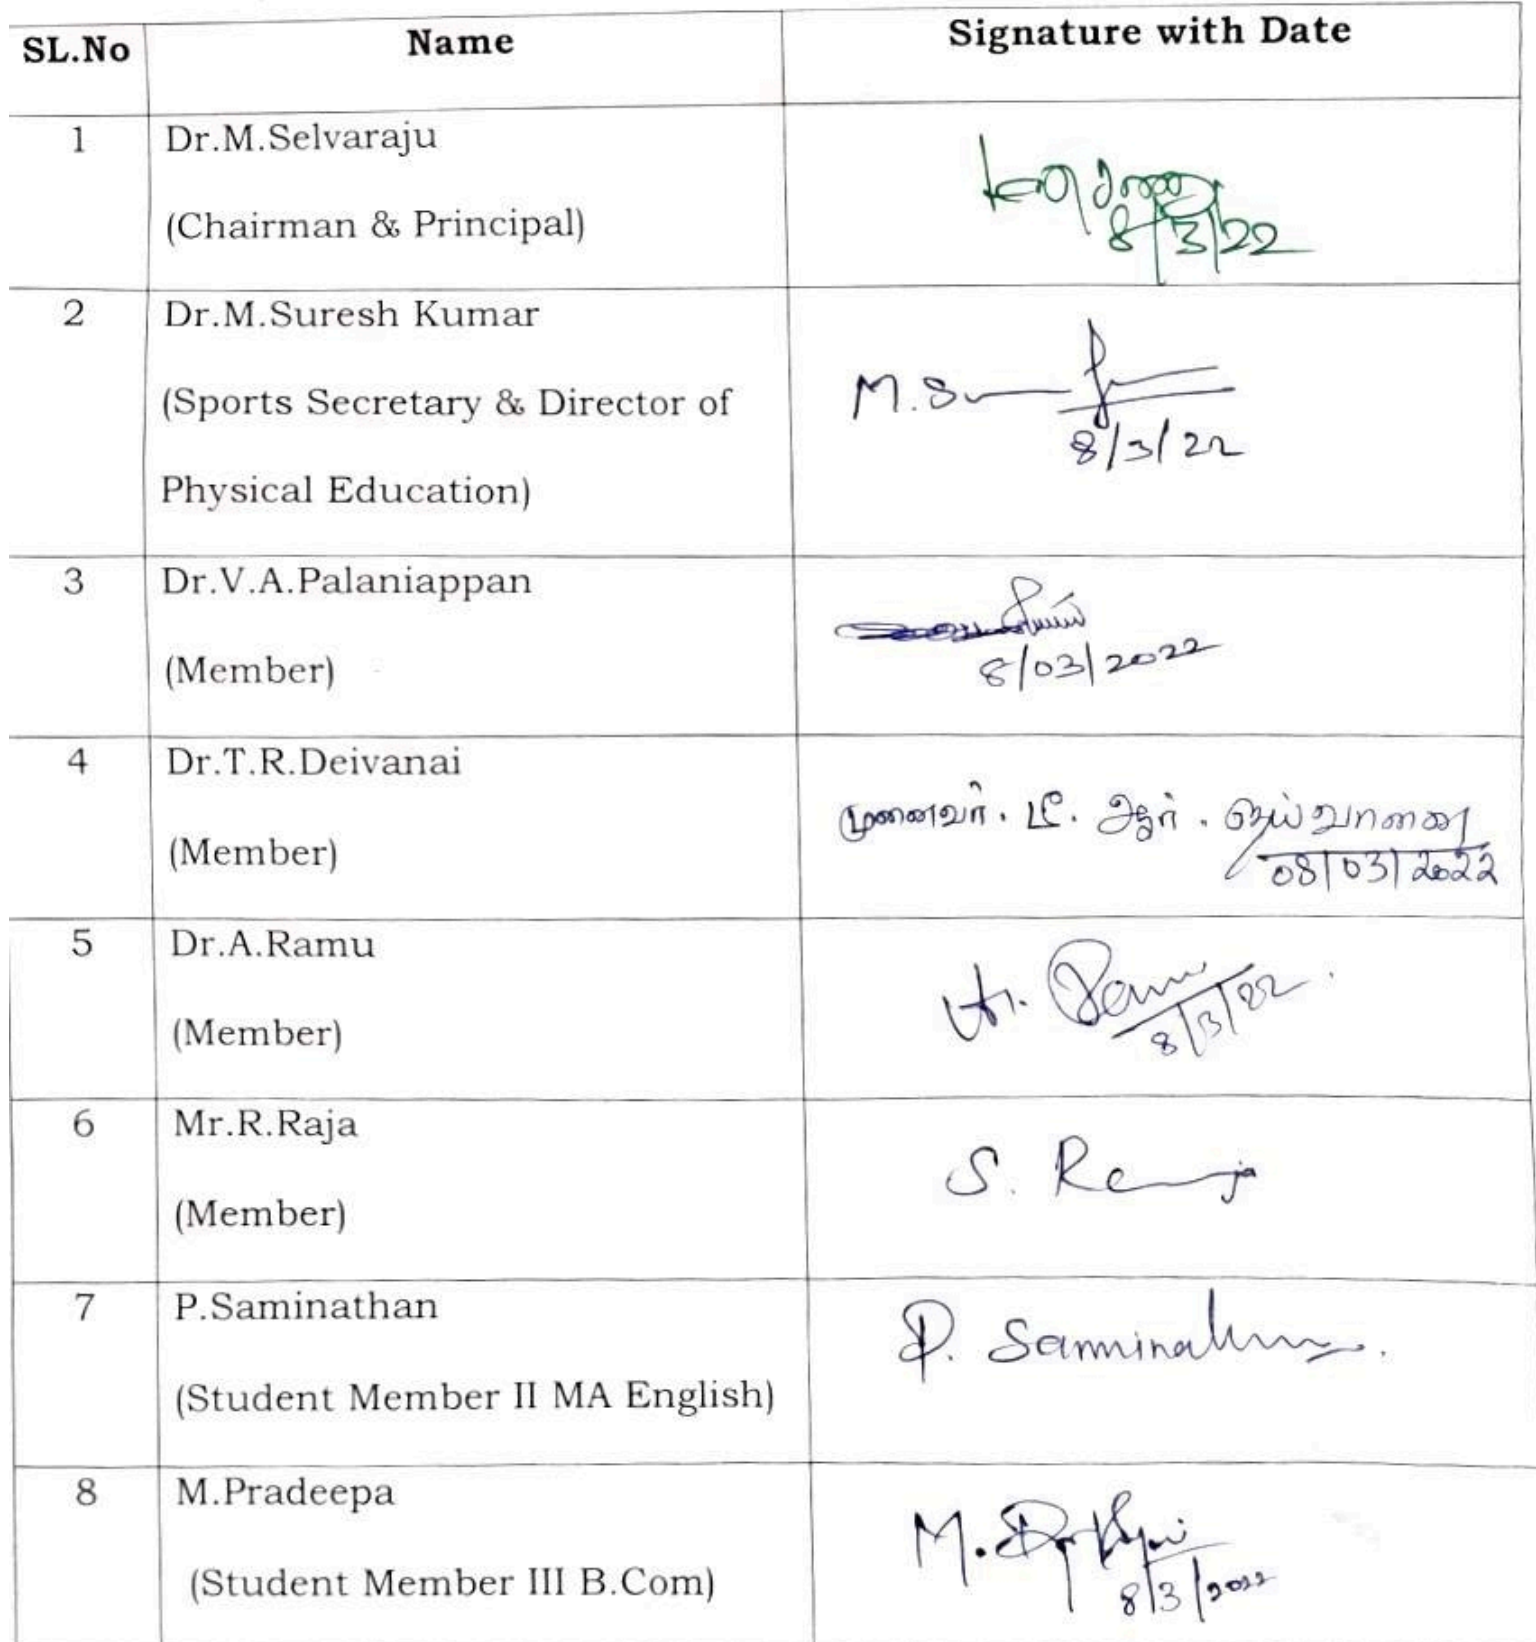 SL.No Name Signature with Date
1 Dr.M.Selvaraju
(Chairman & Principal)
8/3/22
2 Dr.M.Suresh Kumar
M.S
(Sports Secretary & Director of
8/3/22
Physical Education)
3 Dr.V.A.Palaniappan
(Member) 8/03/2022
4 Dr.T.R.Deivanai
முனைவர். டீ. ஆர். தெய்வானை
(Member) 08/03/2022
5 Dr.A.Ramu
(Member) 8/3/22
6 Mr.R.Raja
S. Raja
(Member)
7 P.Saminathan
P. Saminathan.
(Student Member II MA English)
8 M.Pradeepa
M.
(Student Member III B.Com) 8/3/2022